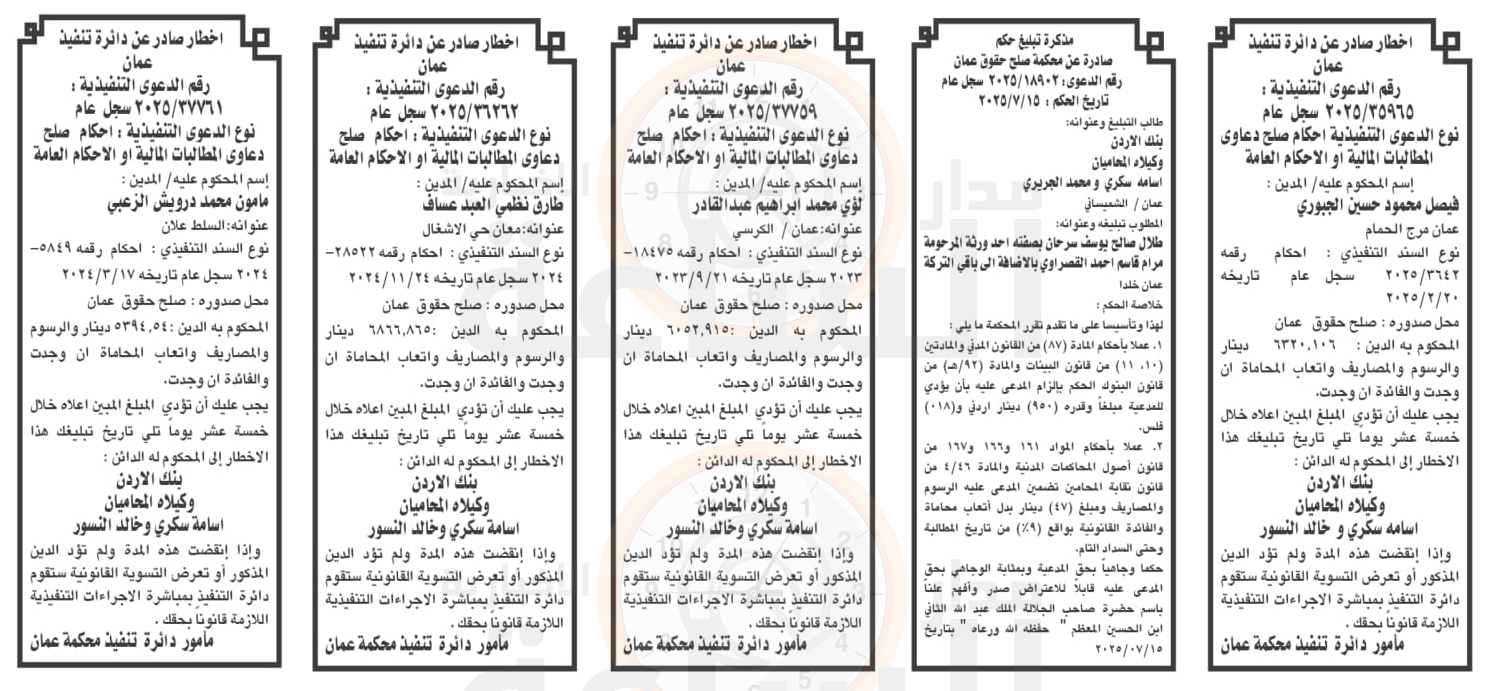 اخطار صادر عن دائرة تنفيذ
عمان
رقم الدعوى التنفيذية :
٢٠٢٥/٣٥٩٦٥ سجل عام
نوع الدعوى التنفيذية احكام صلح دعاوى
المطالبات المالية او الاحكام العامة
إسم المحكوم عليه/ المدين :
فيصل محمود حسين الجبوري
عمان مرج الحمام
نوع السند التنفيذي : احكام رقمه
٢٠٢٥/٣٦٤٢ سجل عام تاريخه
٢٠٢٥/٢/٢٠
محل صدوره : صلح حقوق عمان
المحكوم به الدين : ٦٣٢٠,١٠٦ دينار
والرسوم والمصاريف واتعاب المحاماة ان
وجدت والفائدة ان وجدت.
يجب عليك أن تؤدي المبلغ المبين اعلاه خلال
خمسة عشر يوماً تلي تاريخ تبليغك هذا
الاخطار إلى المحكوم له الدائن :
بنك الاردن
وكيلاه المحاميان
اسامه سكري و خالد النسور
وإذا إنقضت هذه المدة ولم تؤد الدين
المذكور أو تعرض التسوية القانونية ستقوم
دائرة التنفيذ بمباشرة الاجراءات التنفيذية
اللازمة قانوناً بحقك .
مأمور دائرة تنفيذ محكمة عمان
مذكرة تبليغ حكم
صادرة عن محكمة صلح حقوق عمان
رقم الدعوى: ٢٠٢٥/١٨٩٠٢ سجل عام
تاريخ الحكم : ٢٠٢٥/٧/١٥
طالب التبليغ وعنوانه:
بنك الاردن
وكيلاه المحاميان
اسامه سكري و محمد الجريري
عمان / الشميساني
المطلوب تبليغه وعنوانه:
طلال صالح يوسف سرحان بصفته احد ورثة المرحومة
مرام قاسم احمد القصراوي بالاضافة الى باقي التركة
عمان خلدا
خلاصة الحكم :
لهذا وتأسيسا على ما تقدم تقرر المحكمة ما يلي :
١. عملا بأحكام المادة (٨٧) من القانون المدني والمادتين
(١٠، ١١) من قانون البينات والمادة (٩٢/هـ) من
قانون البنوك الحكم بإلزام المدعى عليه بأن يؤدي
للمدعية مبلغاً وقدره (٩٥٠) دينار اردني و(٠١٨)
فلس.
٢. عملا بأحكام المواد ١٦١ و١٦٦ و١٦٧ من
قانون أصول المحاكمات المدنية والمادة ٤/٤٦ من
قانون نقابة المحامين تضمين المدعى عليه الرسوم
والمصاريف ومبلغ (٤٧) دينار بدل أتعاب محاماة
والفائدة القانونية بواقع (٩٪) من تاريخ المطالبة
وحتى السداد التام.
حكما وجاهياً بحق المدعية وبمثابة الوجاهي بحق
المدعى عليه قابلاً للاعتراض صدر وأفهم علناً
باسم حضرة صاحب الجلالة الملك عبد الله الثاني
ابن الحسين المعظم " حفظه الله ورعاه " بتاريخ
٢٠٢٥/٠٧/١٥
اخطار صادر عن دائرة تنفيذ
عمان
رقم الدعوى التنفيذية :
٢٠٢٥/٣٧٧٥٩ سجل عام
نوع الدعوى التنفيذية : احكام صلح
دعاوى المطالبات المالية او الاحكام العامة
إسم المحكوم عليه/ المدين :
لؤي محمد ابراهيم عبدالقادر
عنوانه:عمان / الكرسي
نوع السند التنفيذي : احكام رقمه ١٨٤٧٥–
٢٠٢٣ سجل عام تاريخه ٢٠٢٣/٩/٢١
محل صدوره : صلح حقوق عمان
المحكوم به الدين :٦٠٥٢,٩١٥ دينار
والرسوم والمصاريف واتعاب المحاماة ان
وجدت والفائدة ان وجدت.
يجب عليك أن تؤدي المبلغ المبين اعلاه خلال
خمسة عشر يوماً تلي تاريخ تبليغك هذا
الاخطار إلى المحكوم له الدائن :
بنك الاردن
وكيلاه المحاميان
اسامة سكري وخالد النسور
وإذا إنقضت هذه المدة ولم تؤد الدين
المذكور أو تعرض التسوية القانونية ستقوم
دائرة التنفيذ بمباشرة الاجراءات التنفيذية
اللازمة قانوناً بحقك .
مأمور دائرة تنفيذ محكمة عمان
اخطار صادر عن دائرة تنفيذ
عمان
رقم الدعوى التنفيذية :
٢٠٢٥/٣٦٢٦٢ سجل عام
نوع الدعوى التنفيذية : احكام صلح
دعاوى المطالبات المالية او الاحكام العامة
إسم المحكوم عليه/ المدين :
طارق نظمي العبد عساف
عنوانه:معان حي الاشغال
نوع السند التنفيذي : احكام رقمه ٢٨٥٢٢–
٢٠٢٤ سجل عام تاريخه ٢٠٢٤/١١/٢٤
محل صدوره : صلح حقوق عمان
المحكوم به الدين :٦٨٦٦,٨٦٥ دينار
والرسوم والمصاريف واتعاب المحاماة ان
وجدت والفائدة ان وجدت.
يجب عليك أن تؤدي المبلغ المبين اعلاه خلال
خمسة عشر يوماً تلي تاريخ تبليغك هذا
الاخطار إلى المحكوم له الدائن :
بنك الاردن
وكيلاه المحاميان
اسامة سكري وخالد النسور
وإذا إنقضت هذه المدة ولم تؤد الدين
المذكور أو تعرض التسوية القانونية ستقوم
دائرة التنفيذ بمباشرة الاجراءات التنفيذية
اللازمة قانوناً بحقك .
مأمور دائرة تنفيذ محكمة عمان
اخطار صادر عن دائرة تنفيذ
عمان
رقم الدعوى التنفيذية :
٢٠٢٥/٣٧٧٦١ سجل عام
نوع الدعوى التنفيذية : احكام صلح
دعاوى المطالبات المالية او الاحكام العامة
إسم المحكوم عليه/ المدين :
مامون محمد درويش الزعبي
عنوانه:السلط علان
نوع السند التنفيذي : احكام رقمه ٥٨٤٩–
٢٠٢٤ سجل عام تاريخه ٢٠٢٤/٣/١٧
محل صدوره : صلح حقوق عمان
المحكوم به الدين :٥٣٩٤,٥٤ دينار والرسوم
والمصاريف واتعاب المحاماة ان وجدت
والفائدة ان وجدت.
يجب عليك أن تؤدي المبلغ المبين اعلاه خلال
خمسة عشر يوماً تلي تاريخ تبليغك هذا
الاخطار إلى المحكوم له الدائن :
بنك الاردن
وكيلاه المحاميان
اسامة سكري وخالد النسور
وإذا إنقضت هذه المدة ولم تؤد الدين
المذكور أو تعرض التسوية القانونية ستقوم
دائرة التنفيذ بمباشرة الاجراءات التنفيذية
اللازمة قانوناً بحقك .
مأمور دائرة تنفيذ محكمة عمان